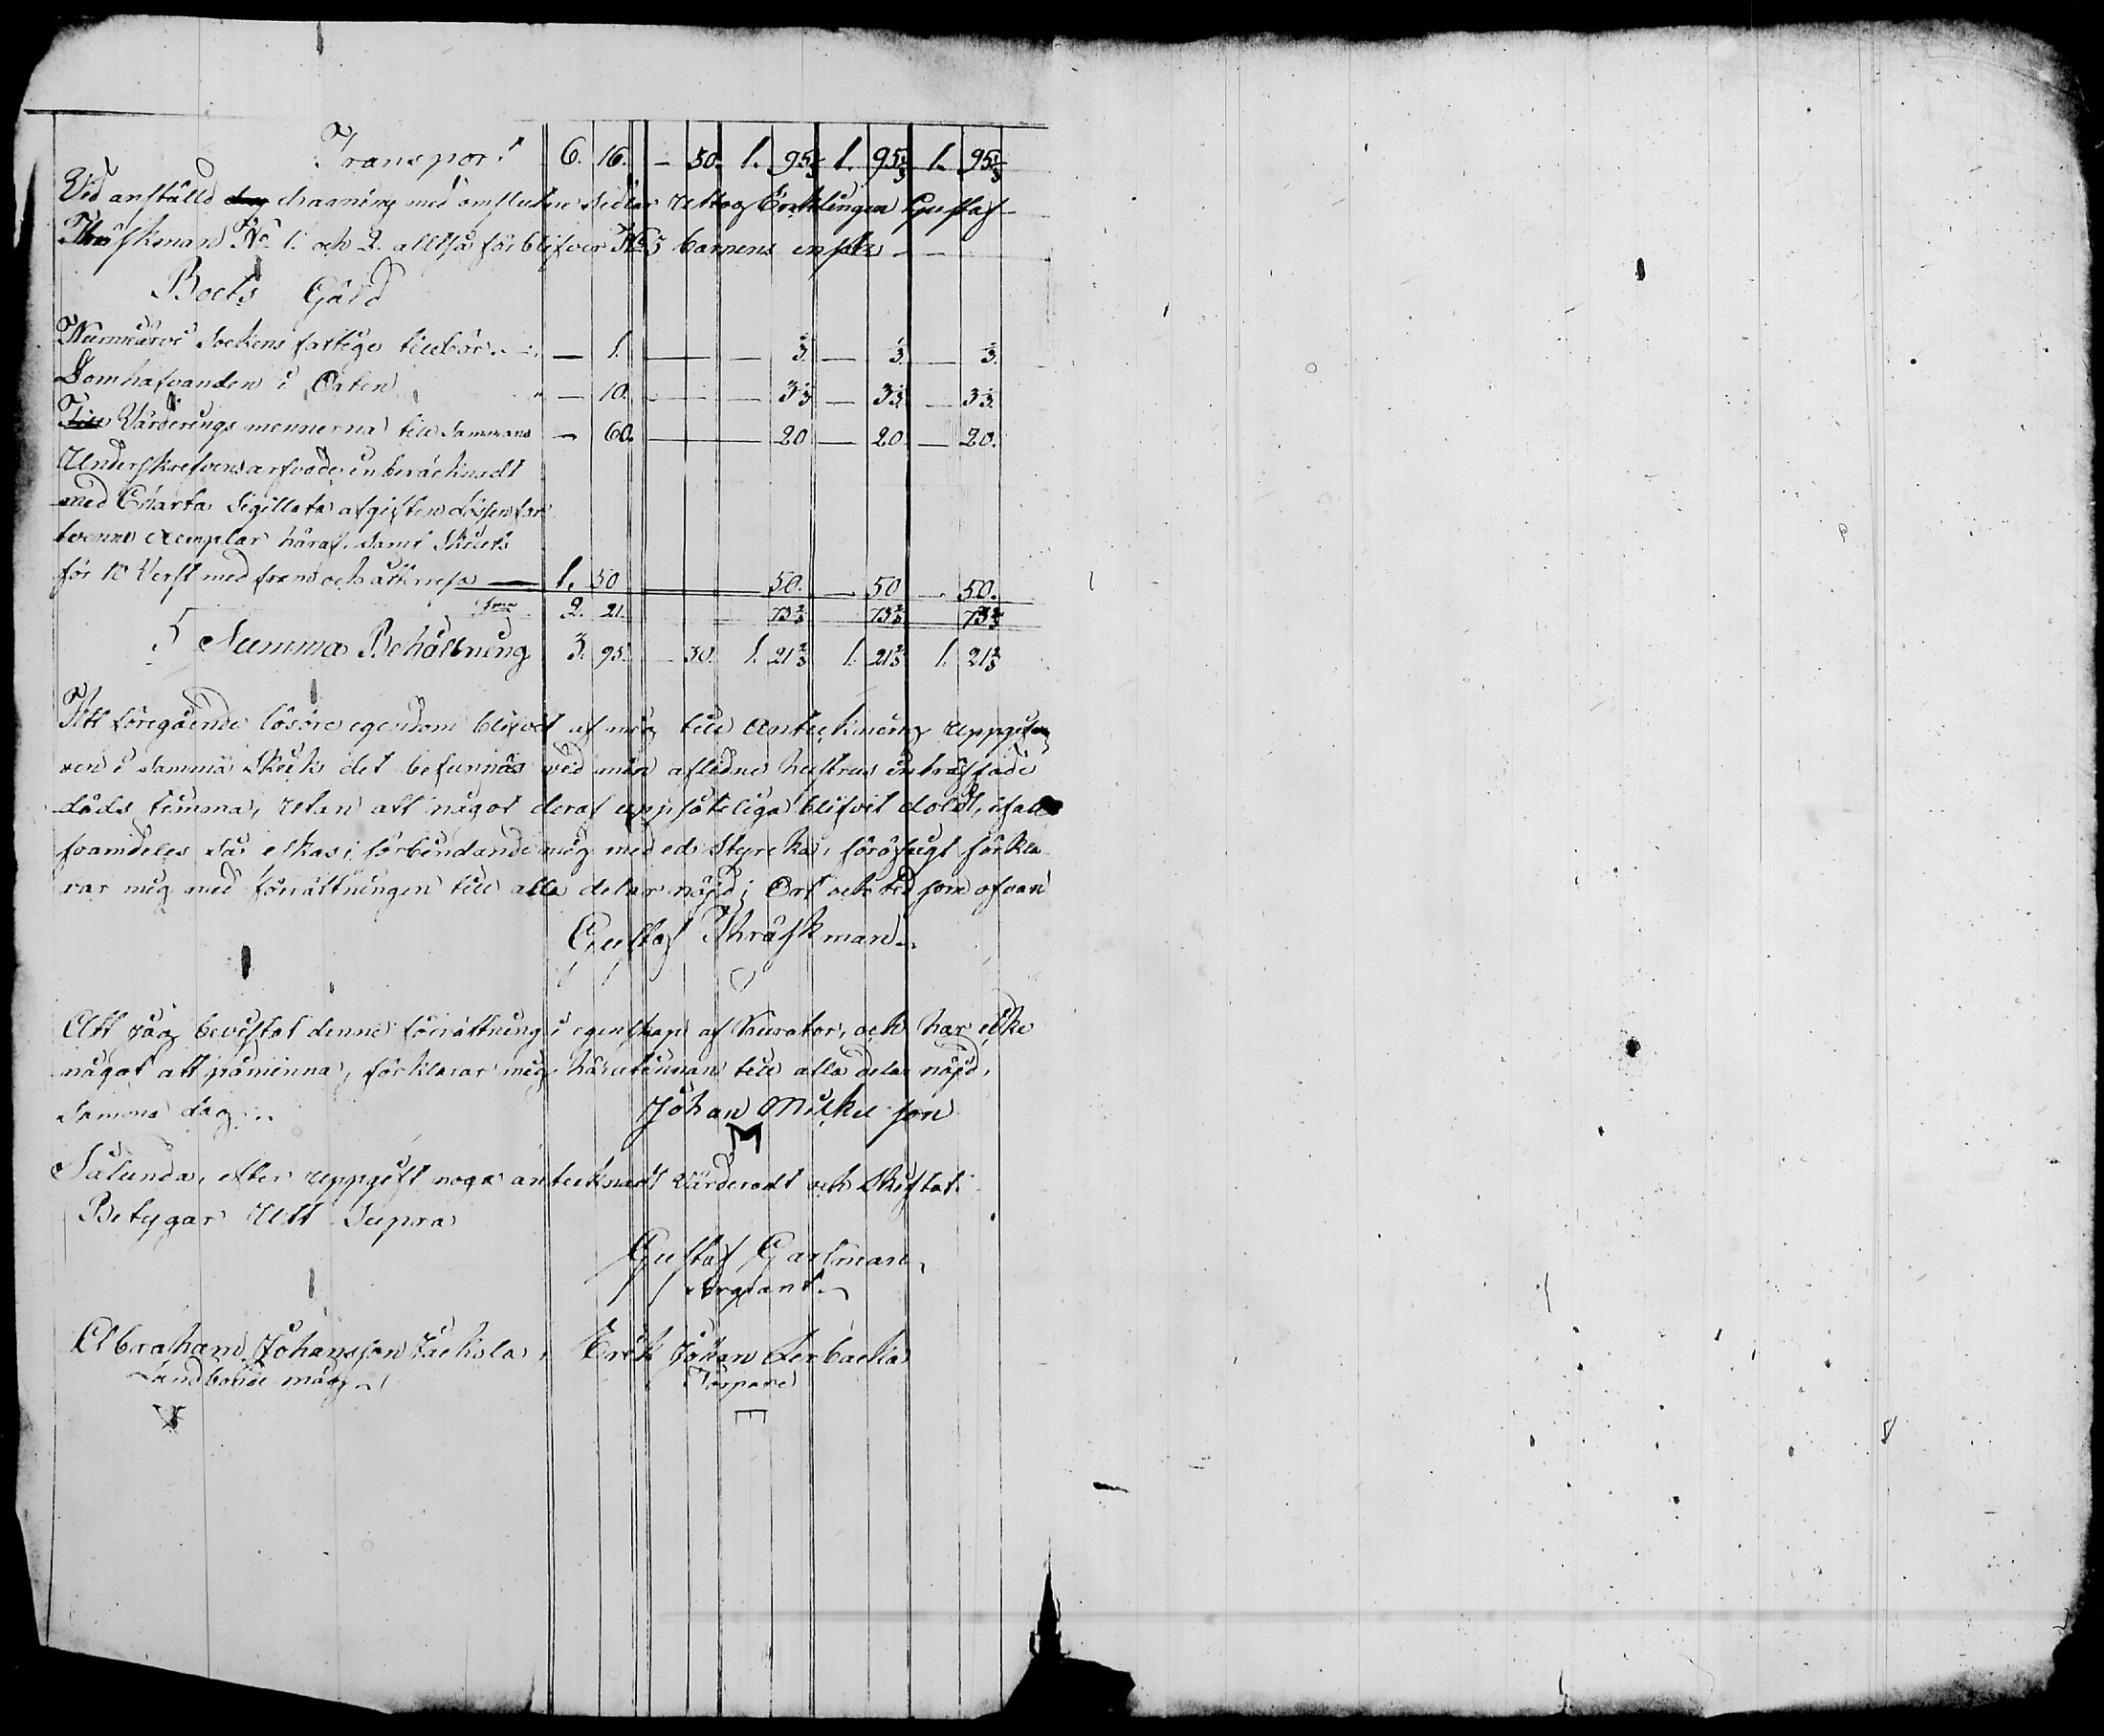 Transport 6. 16. — 30. 1. 95 1/3 1. 95 1/3 1. 95 1/3
Vid anstäld dragning med omslutne sedlar uttog Enklingen Gustaf
Thräskman No 1. och 2. alltså förblifver No 3 barnens ensak — —
Boets Gäld
Nummärvi Sockens fattige tillbör — 1. — — 1/3. — 1/3. — 1/3.
Domhafvanden i Orten " — 10. — — 3 1/3 — 3 1/3 — 3 1/3.
Värderings mennerna till sammans — 60. — 20 — 20. — 20.
Underskrefvens arfvode inberäcknadt
med Charta Sigillata afgiften
tvenne exemplar häraf, samt Skuts
för 10 Verst med fram och återresa — 1. 50 50. — 50 — 50.
Sma 2. 21. 73 2/3 73 2/3 73 2/3
Summa Behållning 3. 95. — 30. 1. 21 2/3 1. 21 2/3 1. 21 2/3
Att föregående lösöre egendom blifvet af mig till anteckning uppgifven
i samma skick det befunnas vid min aflidne hustrus inträffade
döds timma, utan att något deraf uppsåteliga blifvit doldt, ifall
framdeles så eskas; förbindande mig med ed styrcka, föröfrigt förkla
rar mig med förrättningen till alla delar nöjd; Ort och tid som ofvan
Gustaf Thräskman
Att jag bevistat denne förrättning i egenskap af Kurator, och har icke
något att påminna, förklarar mig härutinnan till alla delar nöjd,
Samma dag
Johan Mickelson
M
Sålunda, efter uppgift noga antecknadt värderadt och skiftat.
Betygar Utt Supra
Gustaf Garfman
Sergeant.
Abraham Johansson Jackola, Erik Johan Lerbacka
Landbonde måg Torpare